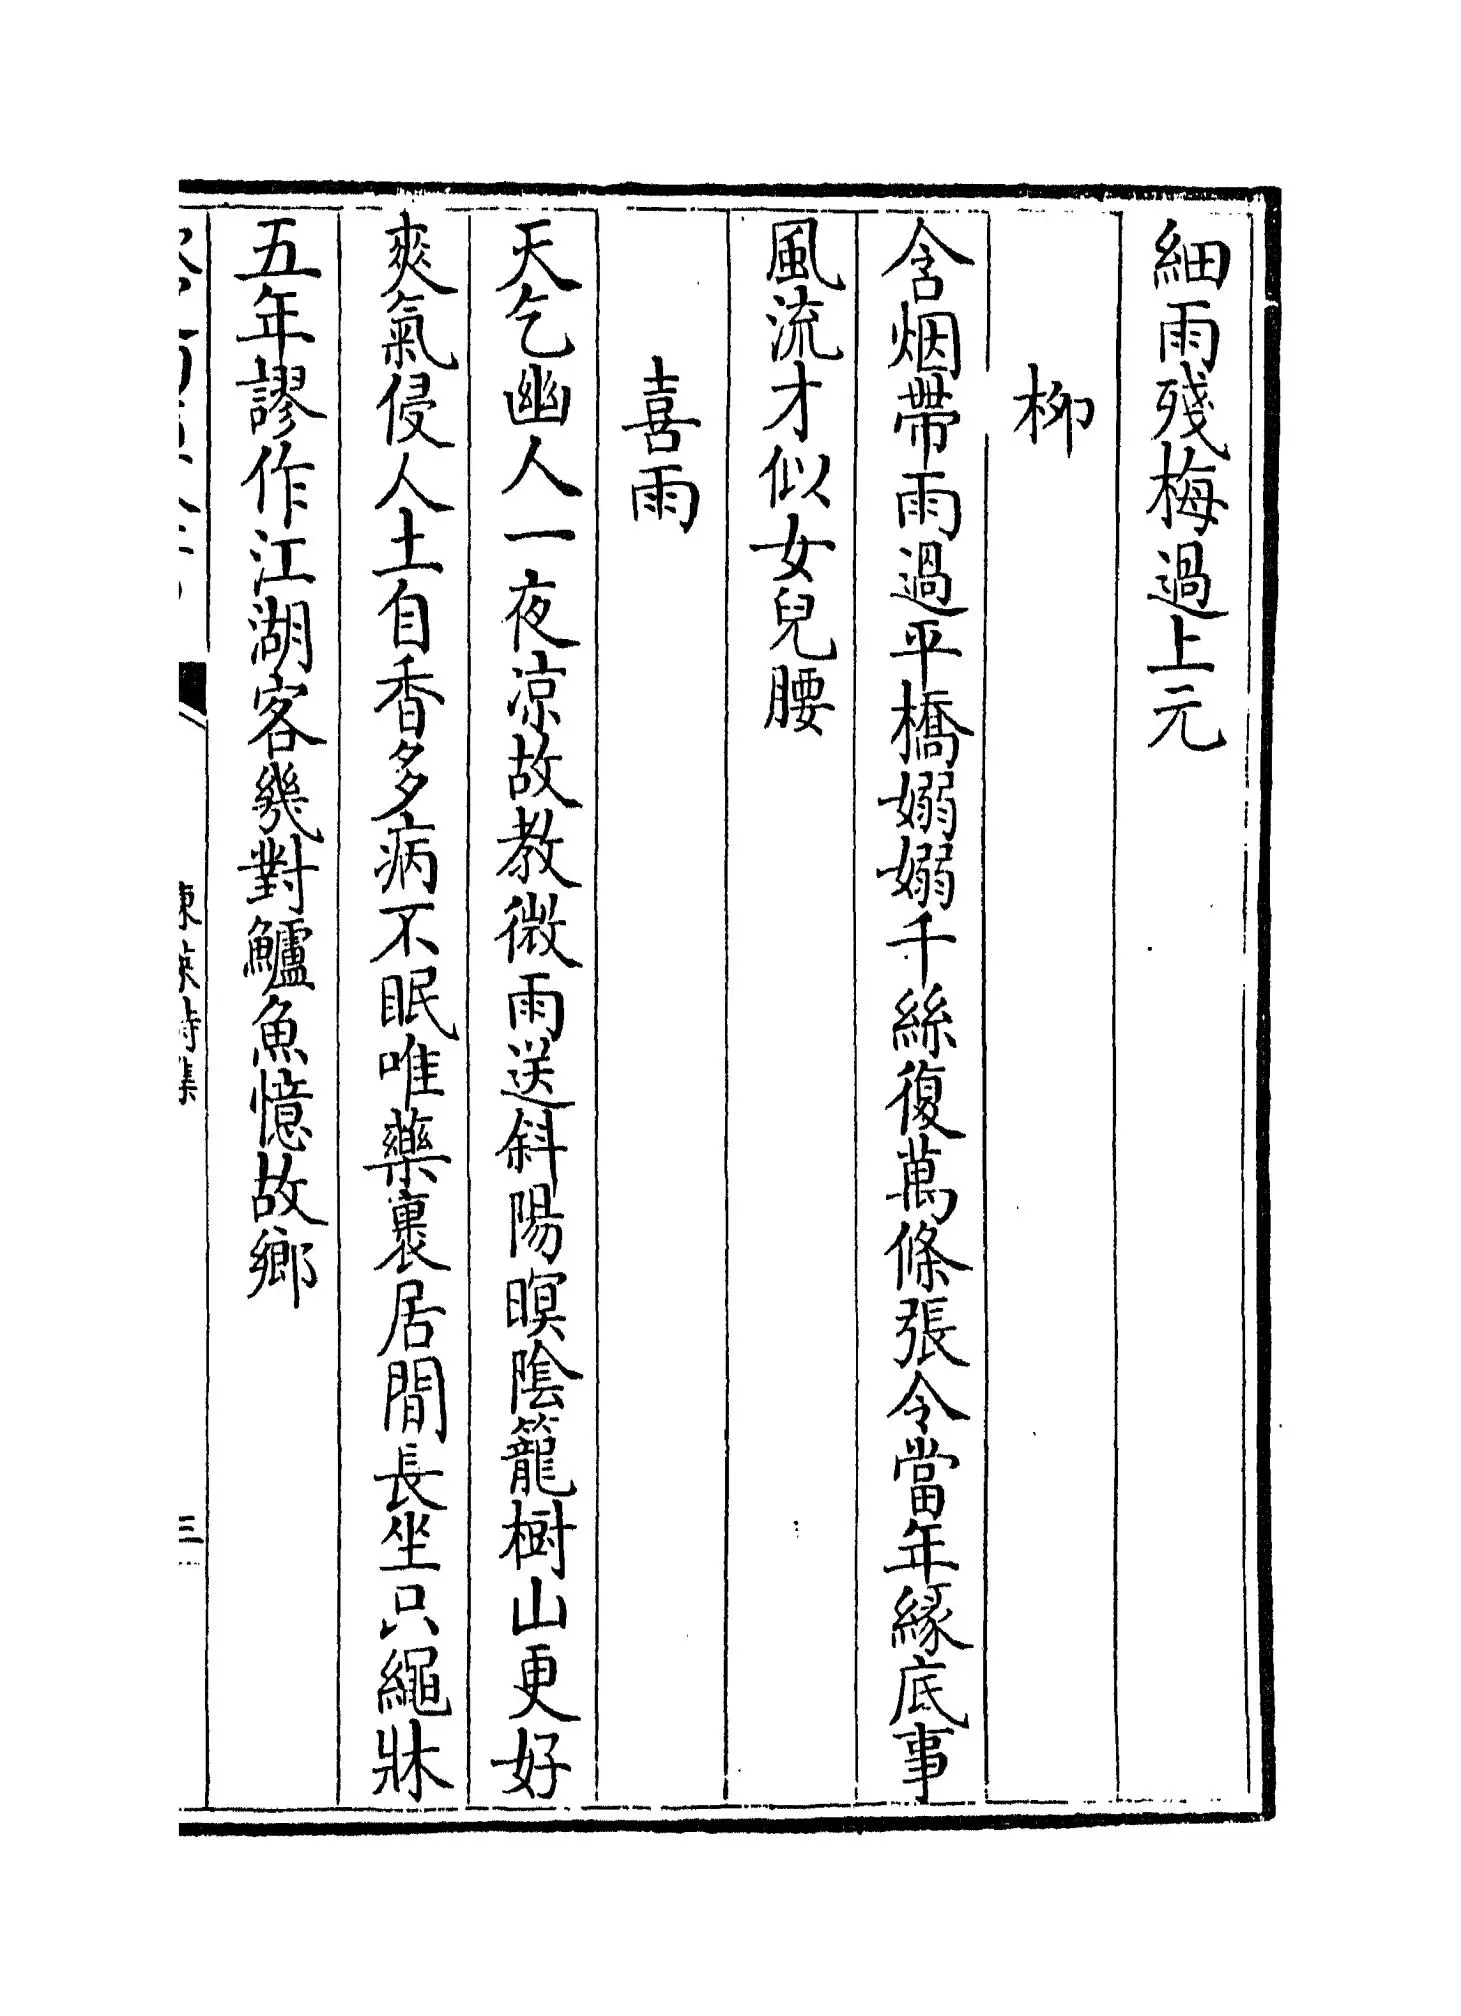 細雨殘梅過上元
柳
含烟帶雨過平橋嫋嫋千絲復萬條張令當年緣底事
風流才似女兒腰
喜雨
天乞幽人一夜凉故教微雨送斜陽暝陰籠樹山更好
爽氣侵人土自香多病不眠唯藥裹居閒長坐只繩牀
五年謬作江湖客幾對鱸魚憶故鄉
三